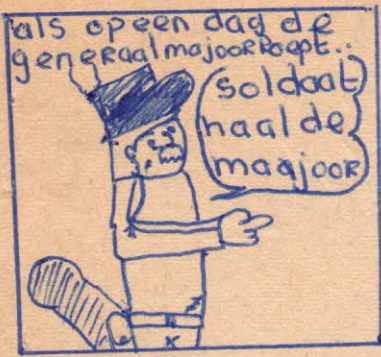 als op een dag de
generaalmajoor roept..
soldaat
haal de
maajoor